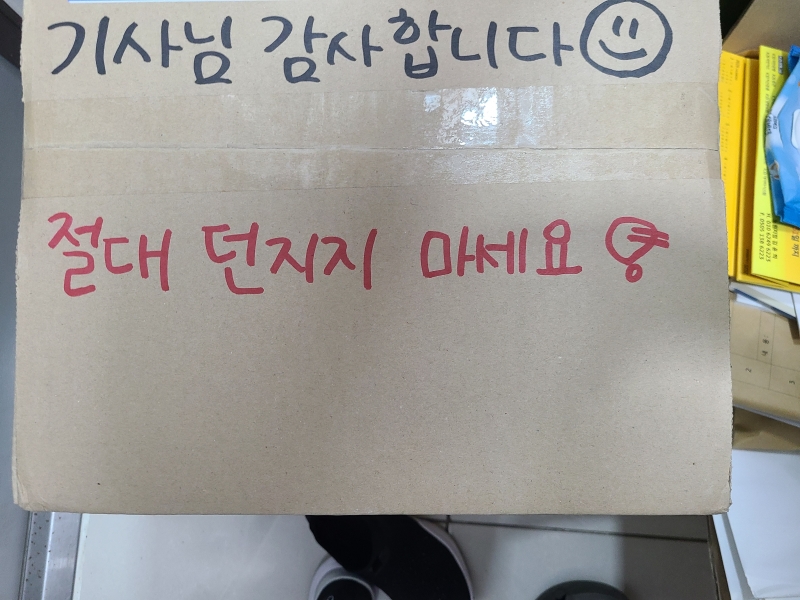 기사님 감사합니다
절대 던지지 마세요